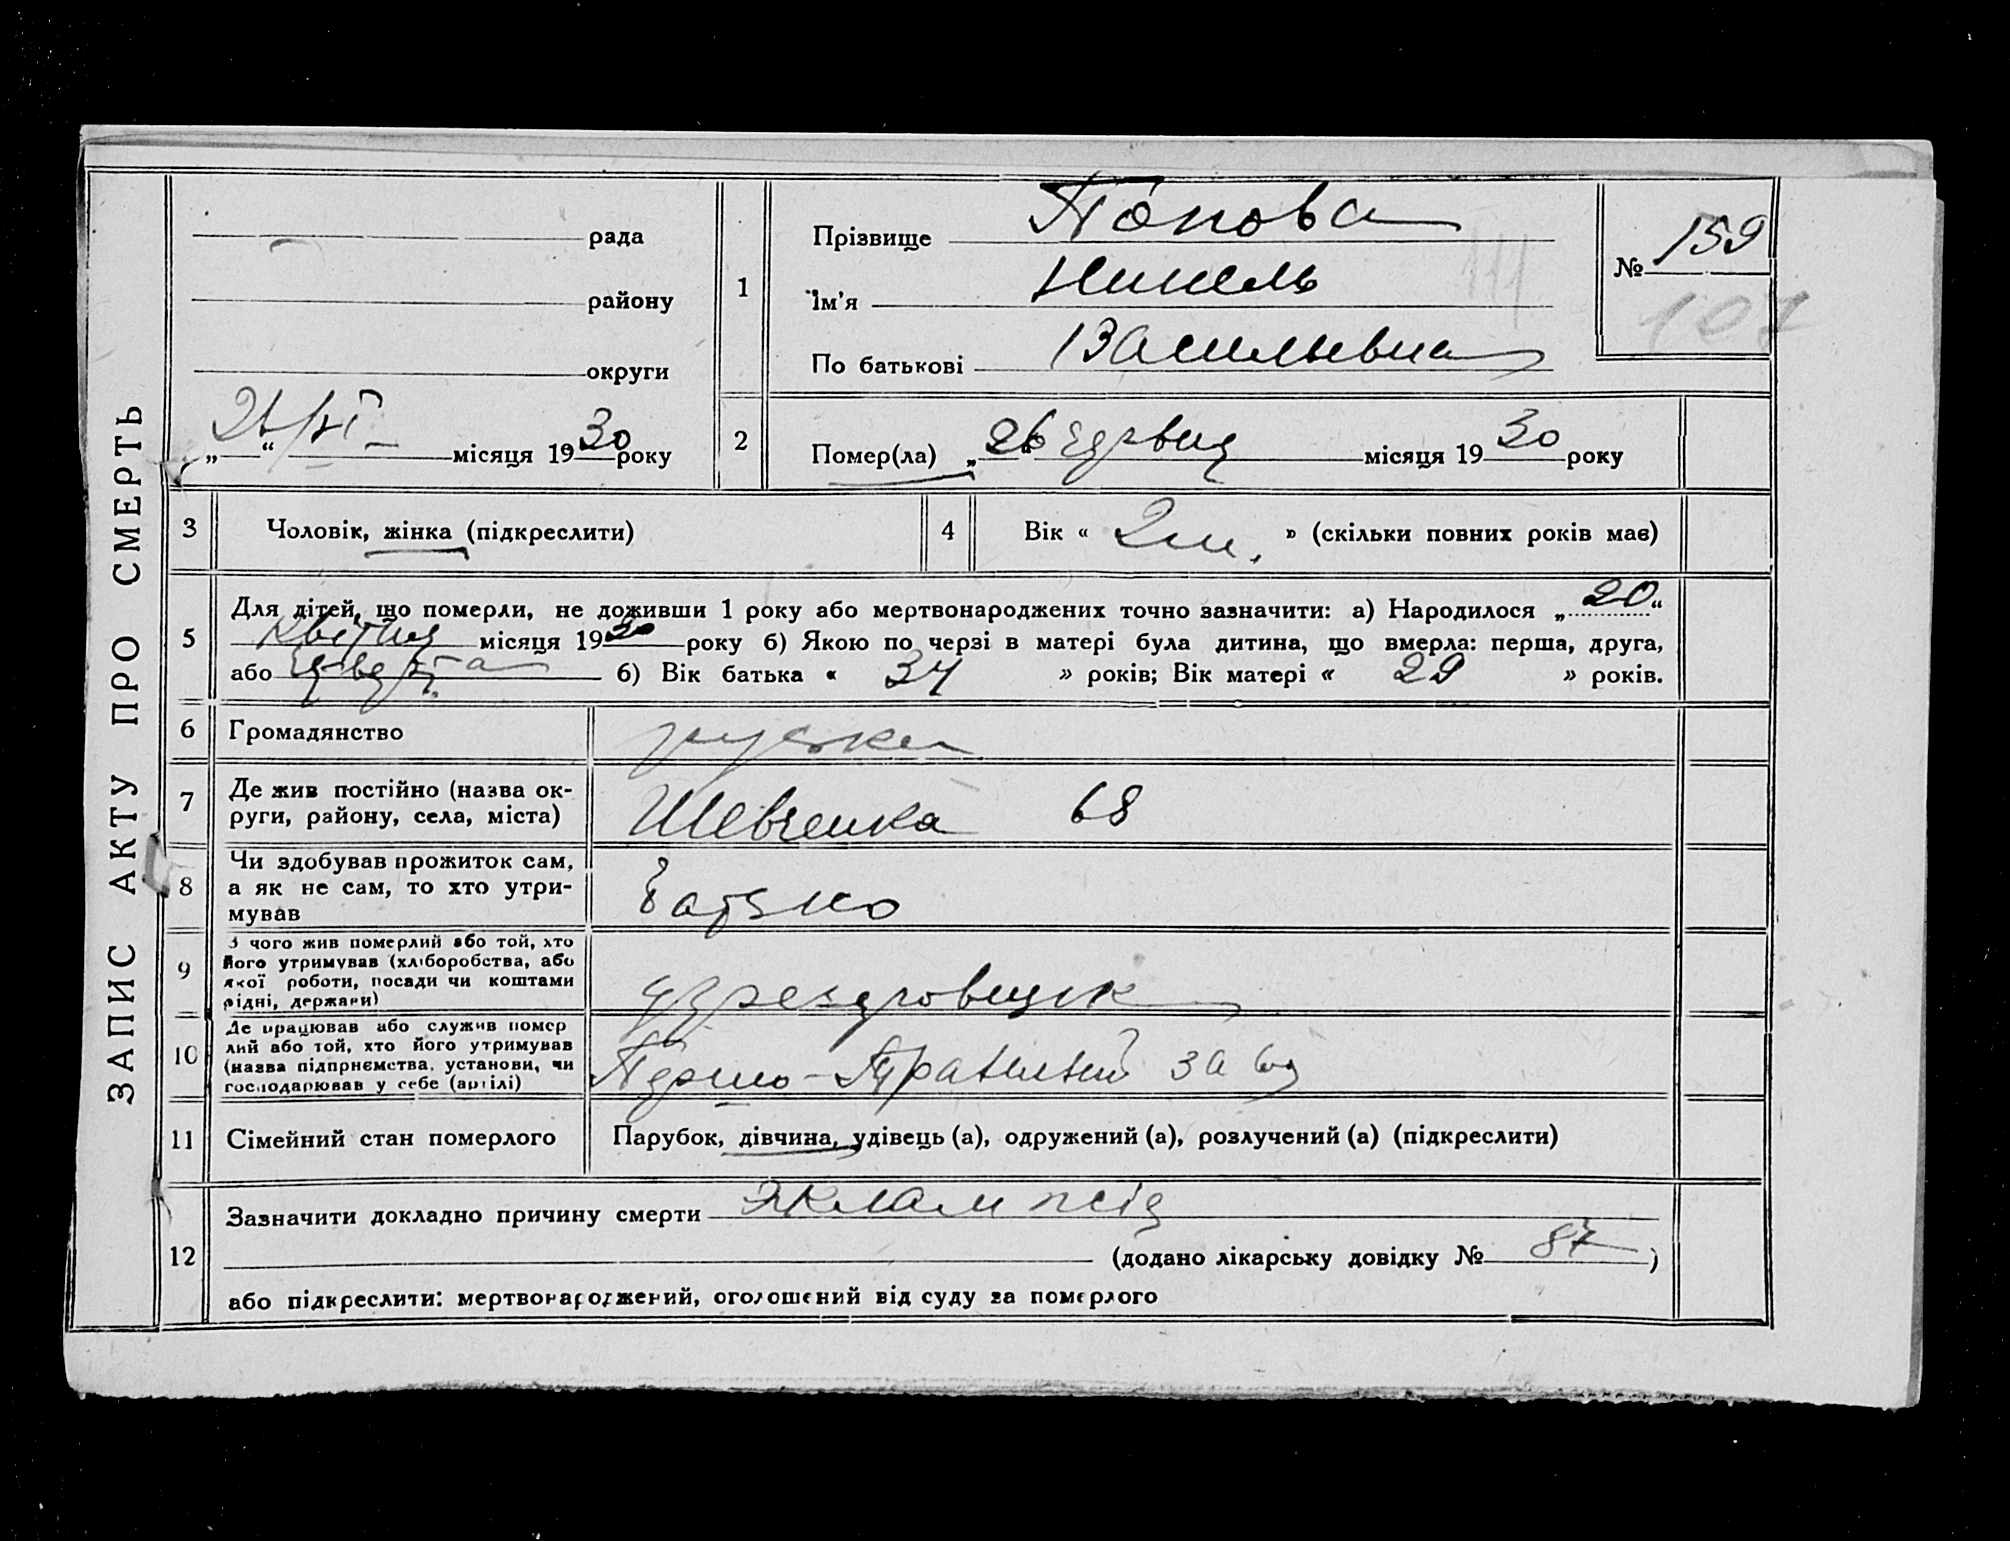 ЗАПИС АКТУ ПРО СМЕРТЬ
рада
району
округи
„ 26 “ VI місяця 1930 року
1
Прізвище Попова
Ім'я Нинель
По батькові Васильївна
№ 159
107
2
Помер(ла) „26“ червня місяця 1930 року
3 Чоловік, жінка (підкреслити)
4 Вік « 2 м. » (скільки повних років мав)
5 Для дітей, що померли, не доживши 1 року або мертвонароджених точно зазначити: а) Народилося „20“
Квітня місяця 1930 року б) Якою по черзі в матері була дитина, що вмерла: перша, друга,
або четверта б) Вік батька « 34 » років; Вік матері « 29 » років.
6 Громадянство руська
7 Де жив постійно (назва округи, району, села, міста) Шевченка 68
8 Чи здобував прожиток сам, а як не сам, то хто утримував
батько
9 З чого жив померлий або той, хто його утримував (хліборобства, або якої роботи, посади чи коштами рідні, держави)
10 Де працював або служив померлий або той, хто його утримував (назва підприємства, установи, чи господарював у себе (артілі)
Першо-Травневий завод
11 Сімейний стан померлого
Парубок, дівчина, удівець (а), одружений (а), розлучений (а) (підкреслити)
12 Зазначити докладно причину смерти Эклампсія
(додано лікарську довідку № 87)
або підкреслити: мертвонароджений, оголошений від суду за померлого